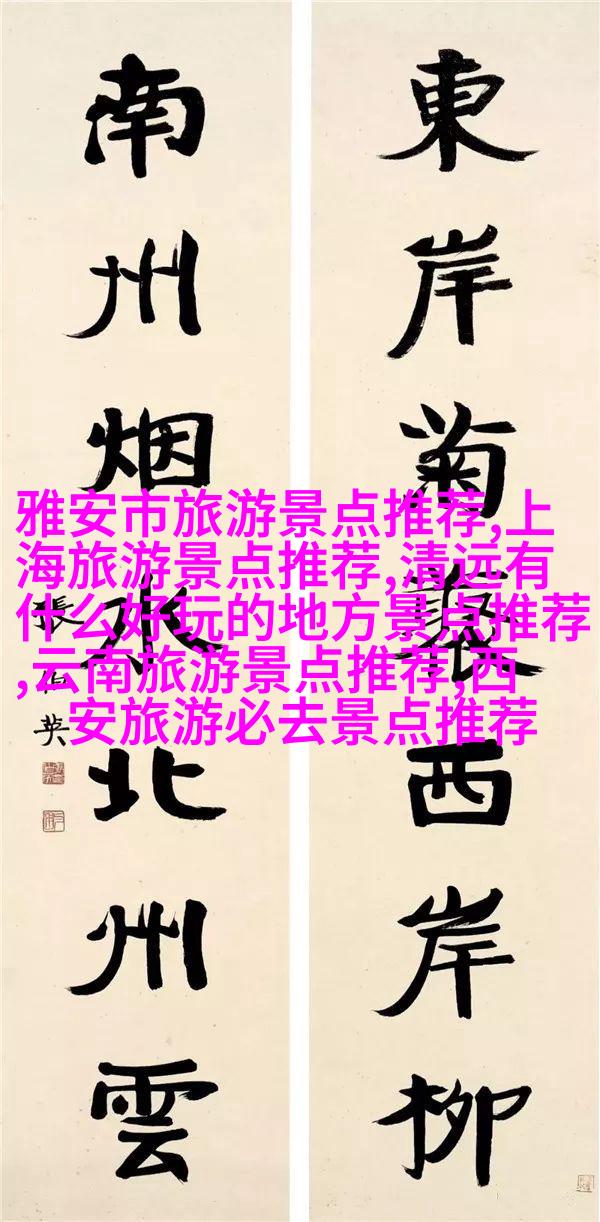 東岸菊叢西岸柳
南州烟水北州雲
張伯英
雅安市旅游景点推荐,上
海旅游景点推荐,清远有
什么好玩的地方景点推荐
,云南旅游景点推荐,西
安旅游必去景点推荐